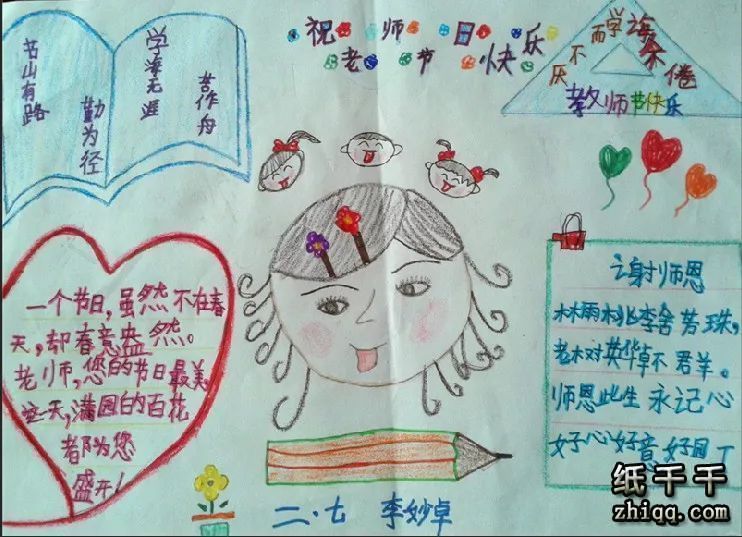 苦山有路
勤为径
学海无涯
苦作舟
祝师日乐
老节快
学而不厌
海人不倦
教师节快乐
一个节日，虽然不在春
天，却春意盎然。
老师，您的节日最美
这天，满园的百花
都为您
盛开！
谢师恩
林雨桃李舍芳珠，
老木对英华卓不群。
师恩此生永记心
好心好意好园丁
二·七 李妙卓
纸千千
zhiqq.com